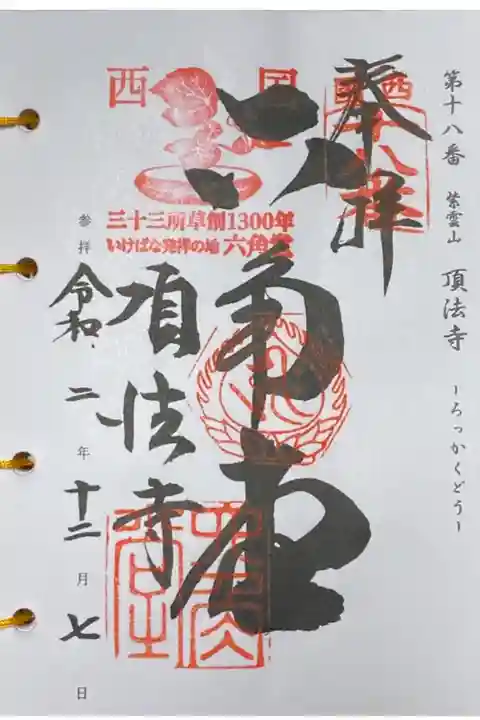 第十八番 紫雲山 頂法寺 ーろっかくどうー
奉拝
西国十八番
六角堂
西国
三十三所草創1300年
いけばな発祥の地 六角堂
頂法寺
参拝 令和 二年 十二月 七日